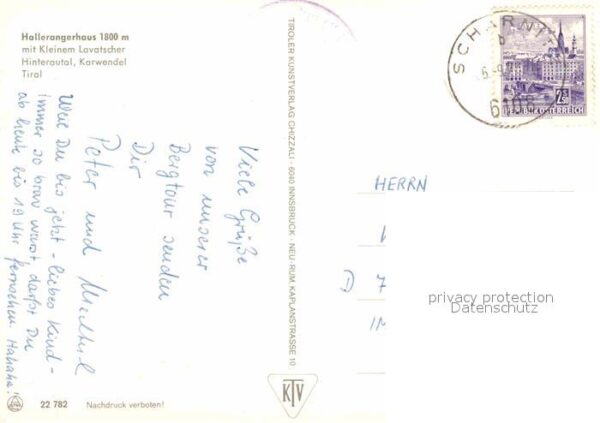 Hallerangerhaus 1800 m
mit Kleinem Lavatscher
Hinterautal, Karwendel
Tirol
Viele Grüße
von unserer
Bergtour senden
Dir
Peter und
Weil Du bis jetzt - liebes Kind -
immer so brav warst, darfst Du
ab heute bis 19 Uhr fernsehen. Hahaha!
22 782 Nachdruck verboten!
TIROLER KUNSTVERLAG CHIZZALI · 6040 INNSBRUCK - NEU-RUM, KAPLANSTRASSE 10
KTV
SCHARNI
b
6108
REPUBLIK ÖSTERREICH
HERRN
D 7
privacy protection
Datenschutz